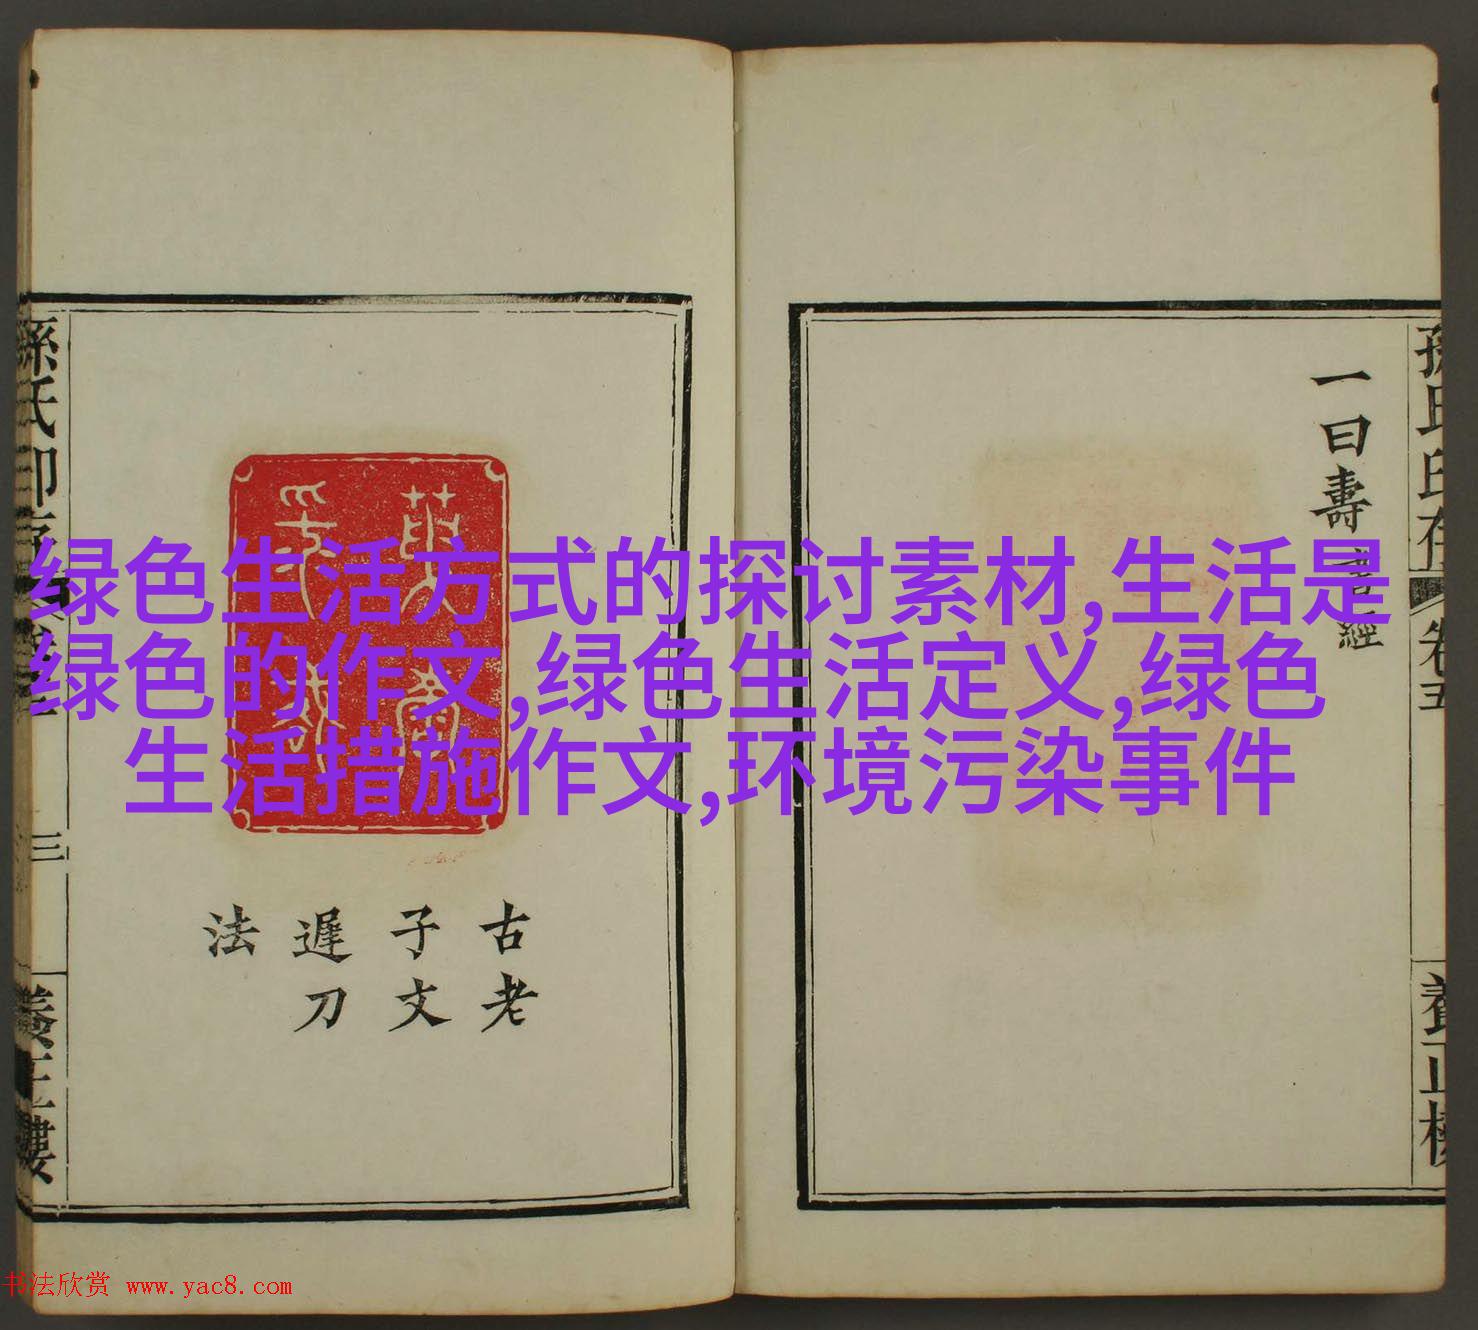 绿色生活方式的探讨素材,生活是
绿色的作文,绿色生活定义,绿色
生活措施作文,环境污染事件
孫氏印存
卷五
養正樓
一曰壽
經
古老
子文
遲刀
法
孫氏印存
三
養正樓
书法欣赏 www.yac8.com